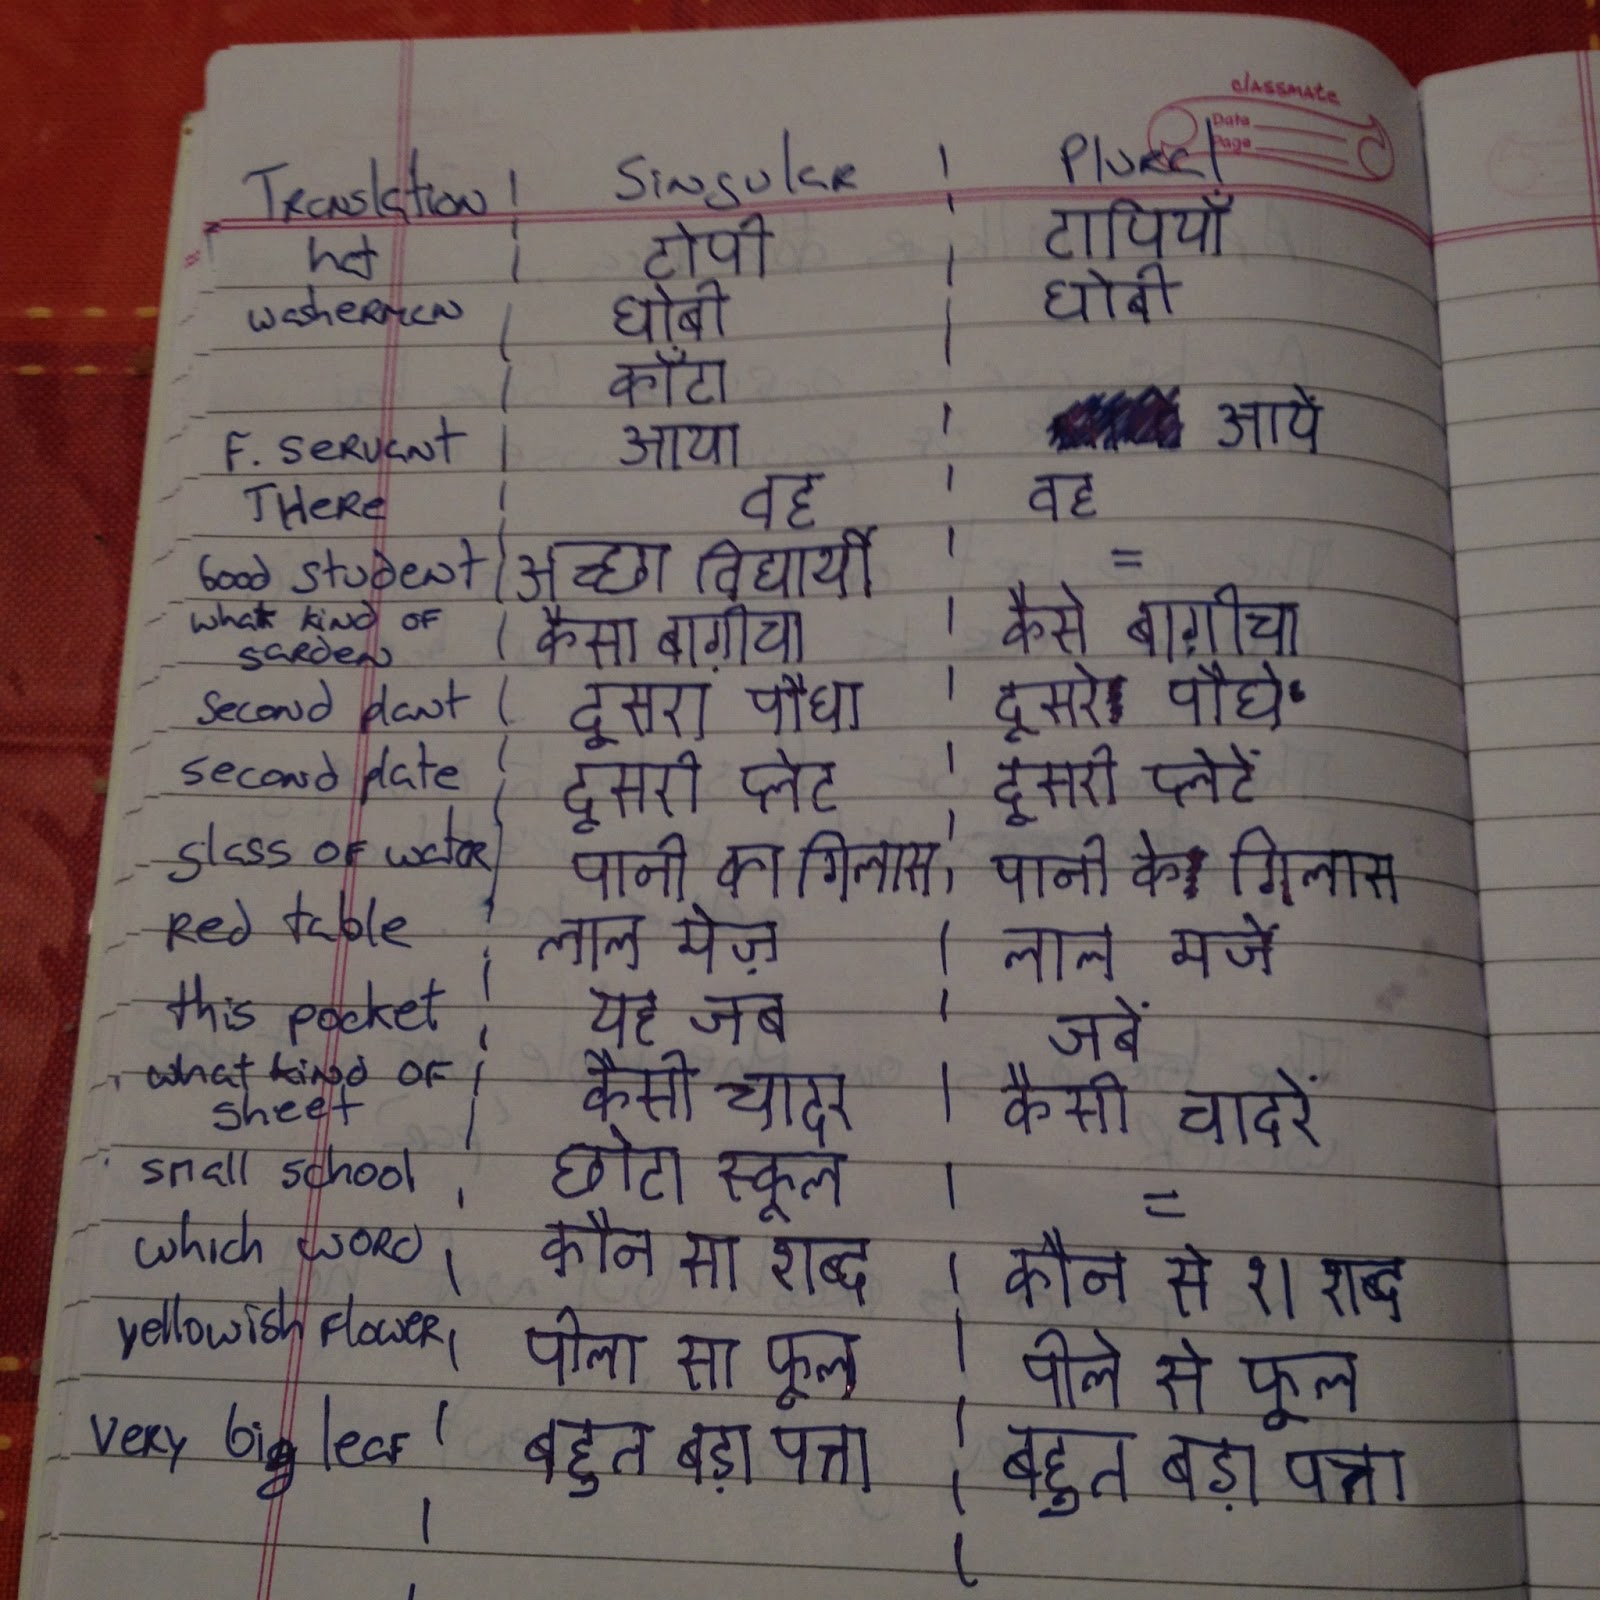 classmate
Date
Page
Translation Singular Plural
hat टोपी टापियाँ
washerman धो़बी धोबी
काँटा
F. servant आया आयें
THere वह वह
Good student अच्छा विद्यार्यी =
what kind of garden कैसा बाग़ीचा कैसे बाग़ीचा
second plant दूसरा पौधा दूसरे पौधे
second plate दूसरी प्लेट दूसरी प्लेटें
glass of water पानी का गिलास पानी के गिलास
Red table लाल मेज़ लाल मजें
this pocket यह जब जबें
what kind of sheet कैसी चादर कैसी चादरें
small school छोटा स्कूल =
which word कौन सा शब्द कौन से श शब्द
yellowish flower पीला सा फूल पीले से फूल
very big leaf बहुत बड़ा पत्ता बहुत बड़ा पत्ता